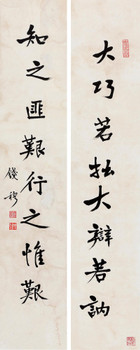 大巧若拙大辯若訥
知之匪艱行之惟艱
錢穆